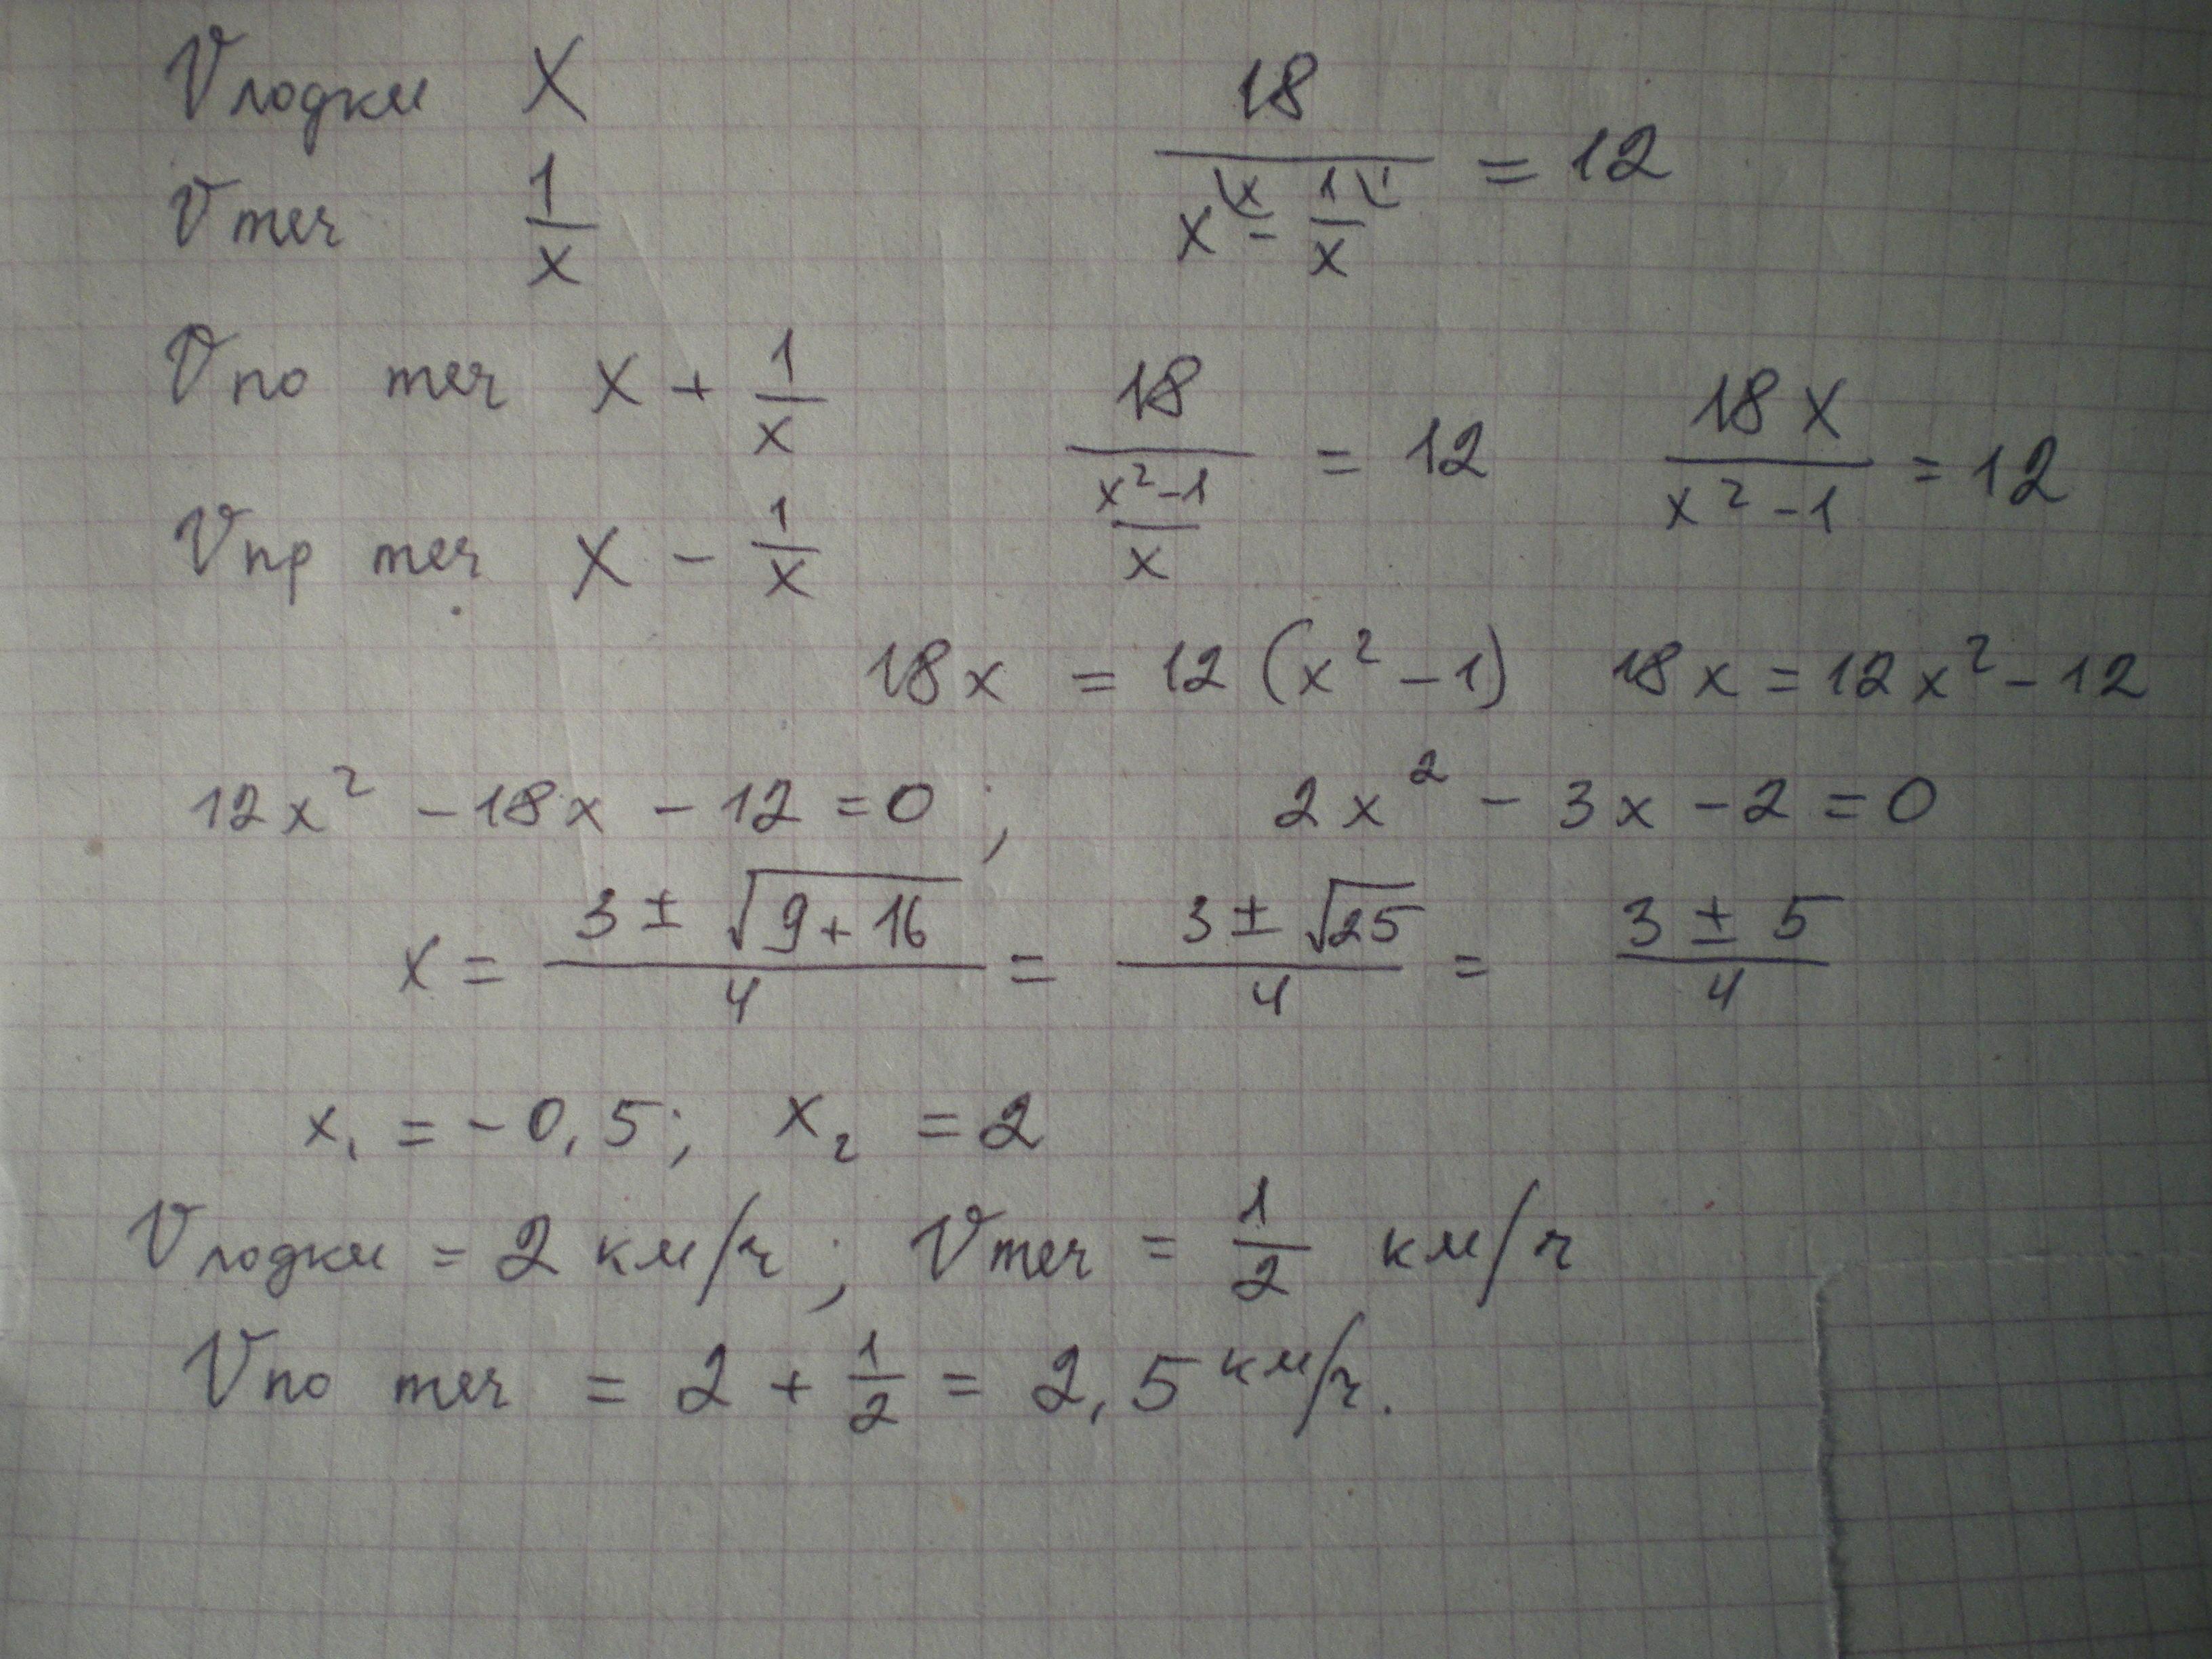 Vлодки X
Vтеч 1/x
18/(x\x - 1\1/x) = 12
Vпо теч x + 1/x
Vпр теч x - 1/x
18/((x²-1)/x) = 12 18x/(x²-1) = 12
18x = 12(x²-1) 18x = 12x²-12
12x² - 18x - 12 = 0; 2x² - 3x - 2 = 0
x = (3 ± √(9+16))/4 = (3 ± √25)/4 = (3 ± 5)/4
x₁ = -0,5; x₂ = 2
Vлодки = 2 км/ч; Vтеч = 1/2 км/ч
Vпо теч = 2 + 1/2 = 2,5 км/ч.